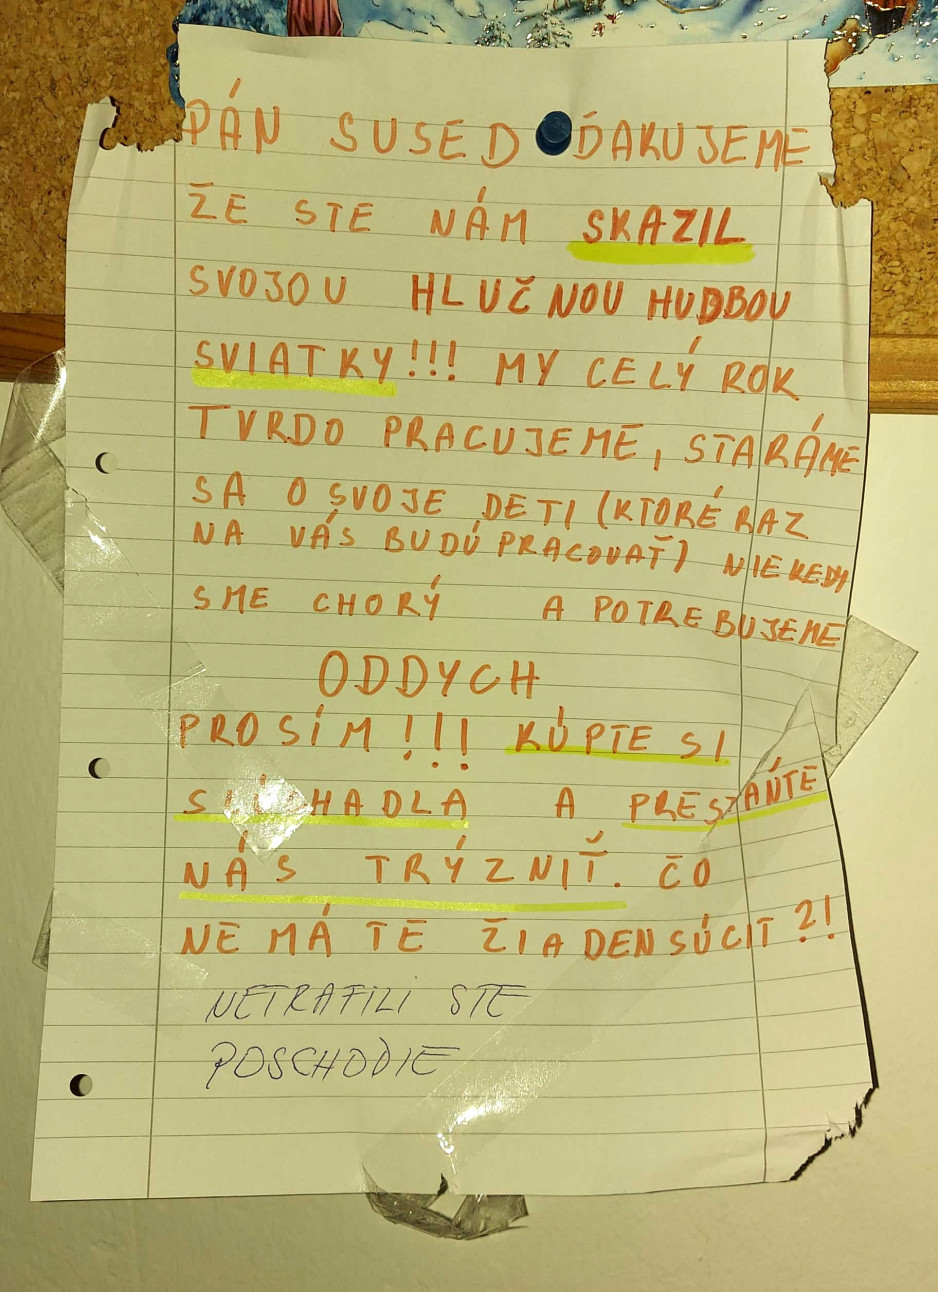 PÁN SUSED ĎAKUJEME
ŽE STE NÁM SKAZIL
SVOJOU HLUČNOU HUDBOU
SVIATKY!!! MY CELÝ ROK
TVRDO PRACUJEME, STARÁME
SA O SVOJE DETI (KTORÉ RAZ
NA VÁS BUDÚ PRACOVAŤ) NIEKEDY
SME CHORÝ A POTREBUJEME
ODDYCH
PROSÍM!!! KÚPTE SI
SLÚCHADLA A PRESTAŇTE
NÁS TRÝZNIŤ. ČO
NEMÁTE ŽIADEN SÚCIT?!
NETRAFILI STE
POSCHODIE